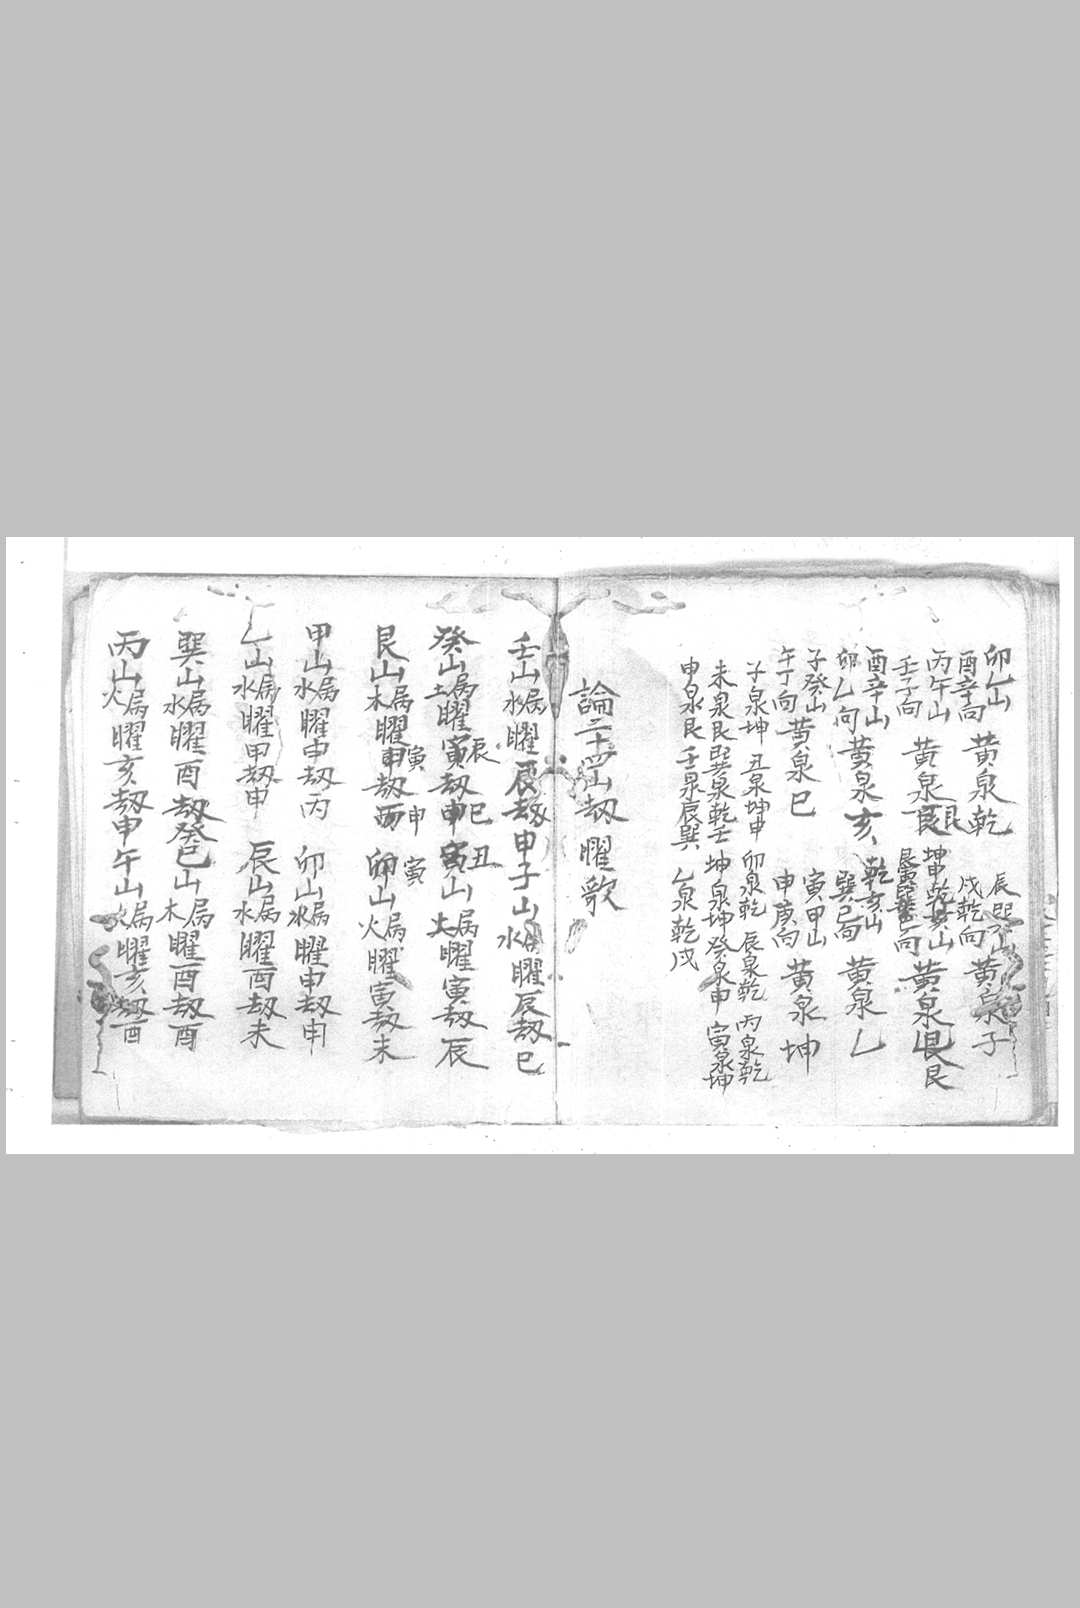 卯乙山
酉辛向
黄泉乾
辰巽山
戌乾向
黄泉子
丙午山
壬子向
黄泉艮
坤申乾亥山
向
黄泉艮
酉辛山
卯乙向
黄泉亥
乾亥山
巽巳向
黄泉乙
子癸山
午丁向
黄泉巳
寅甲山
申庚向
黄泉坤
子泉坤 丑泉坤申 卯泉乾 辰泉乾 丙泉乾
未泉艮巽泉乾壬 坤泉坤癸泉申 寅泉坤
申泉艮 壬泉辰巽 乙泉乾戌
論二十四山刼曜歌
壬山属水曜辰刼申子山属水曜辰刼巳
癸山属土曜寅刼申寅山属土曜寅刼辰
辰 巳 丑
艮山属木曜申刼丙 卯山属火曜寅刼未
寅 申 寅
甲山属水曜申刼丙 卯山属水曜申刼申
乙山属水曜甲刼申 辰山属水曜酉刼未
巽山属水曜酉刼癸巳山属木曜酉刼酉
丙山属火曜亥刼申午山属火曜亥刼酉